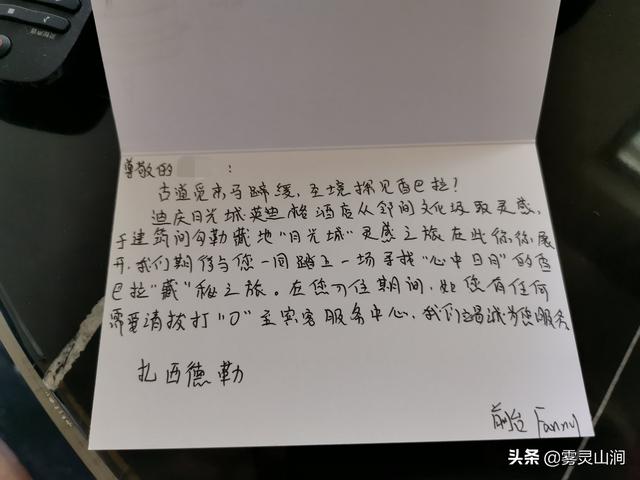 尊敬的 :
古道觅来马蹄缓，至境探见香巴拉！
迪庆月光城英迪格酒店从邻间文化汲取灵感，
于建筑间勾勒藏地"月光城"灵感之旅在此徐徐展
开，我们期待与您一同踏上一场寻找"心中日月"的香
巴拉"藏"秘之旅。在您入住期间，如您有任何
需要请拨打"0"至宾客服务中心，我们竭诚为您服务
扎西德勒
前台 Fanny
头条 @雾灵山涧